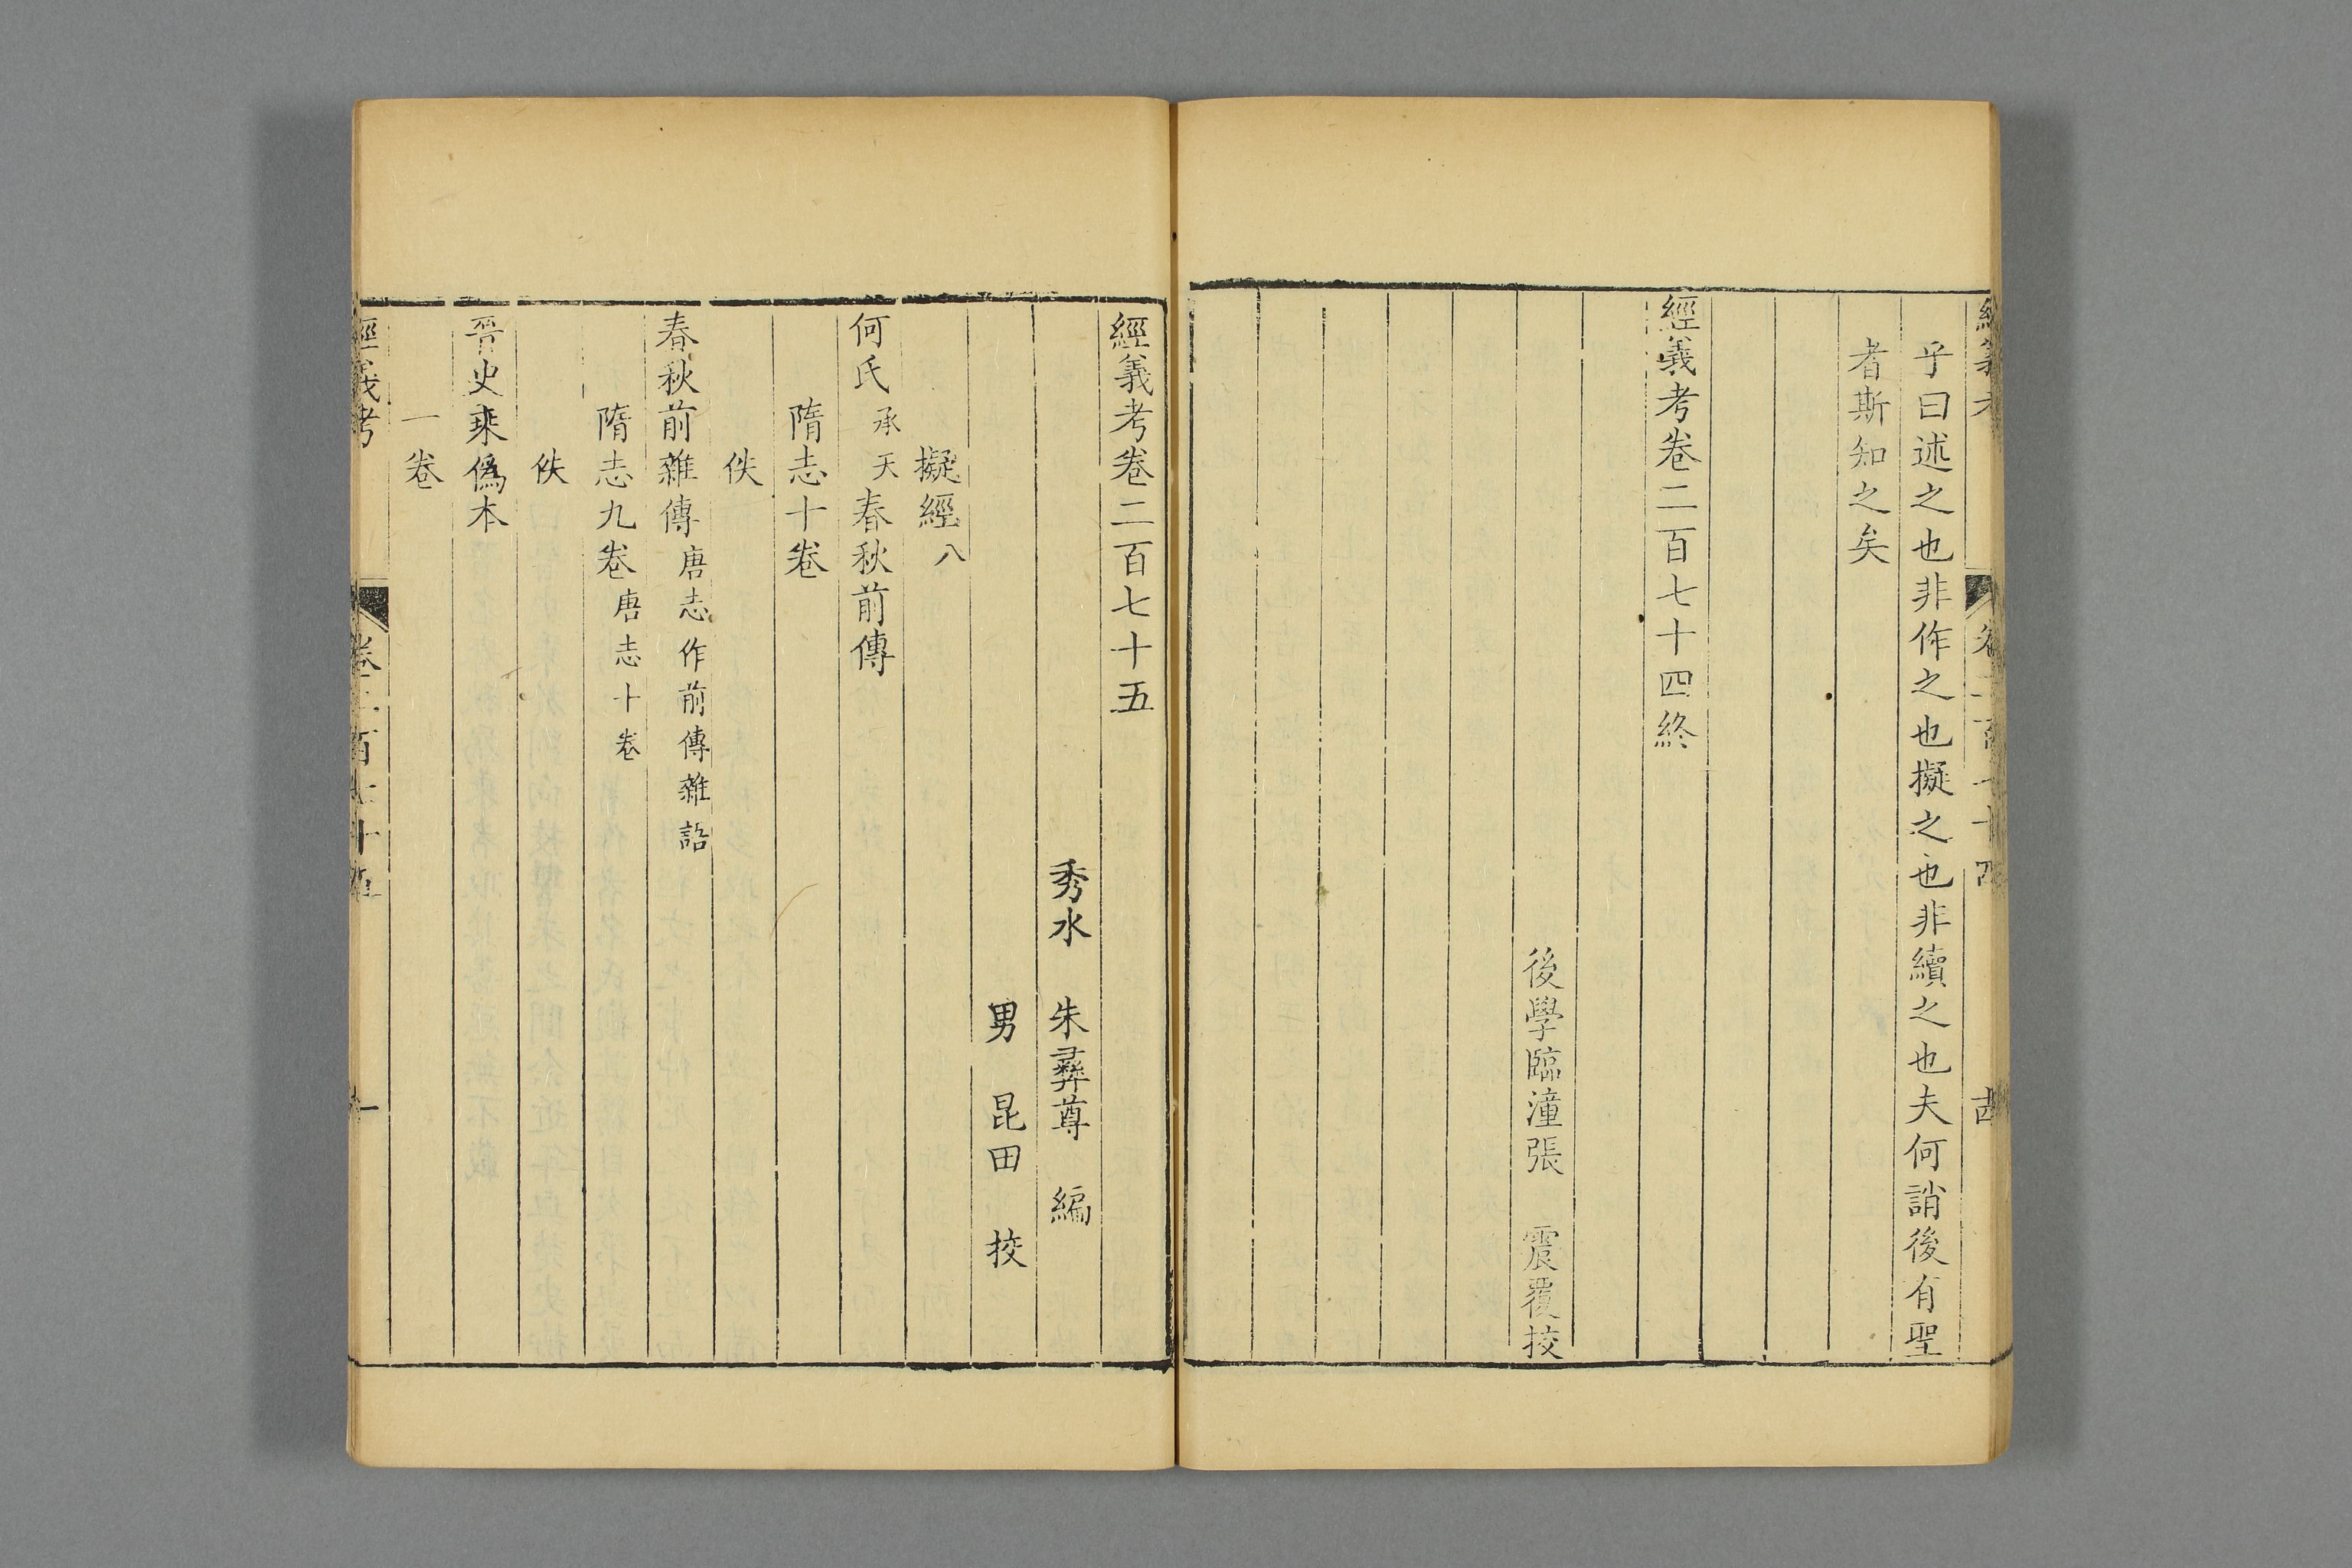 經義考 卷二百七十四 十四
乎曰述之也非作之也擬之也非續之也夫何誚後有聖
者斯知之矣
經義考卷二百七十四終
後學臨潼張 震覆挍
經義考卷二百七十五
秀水 朱彝尊 編
男 昆田 挍
擬經八
何氏承天春秋前傳
隋志十卷
佚
春秋前雜傳唐志作前傳雜語
隋志九卷唐志十卷
佚
晉史乘偽本
一卷
經義考 卷二百七十五 一